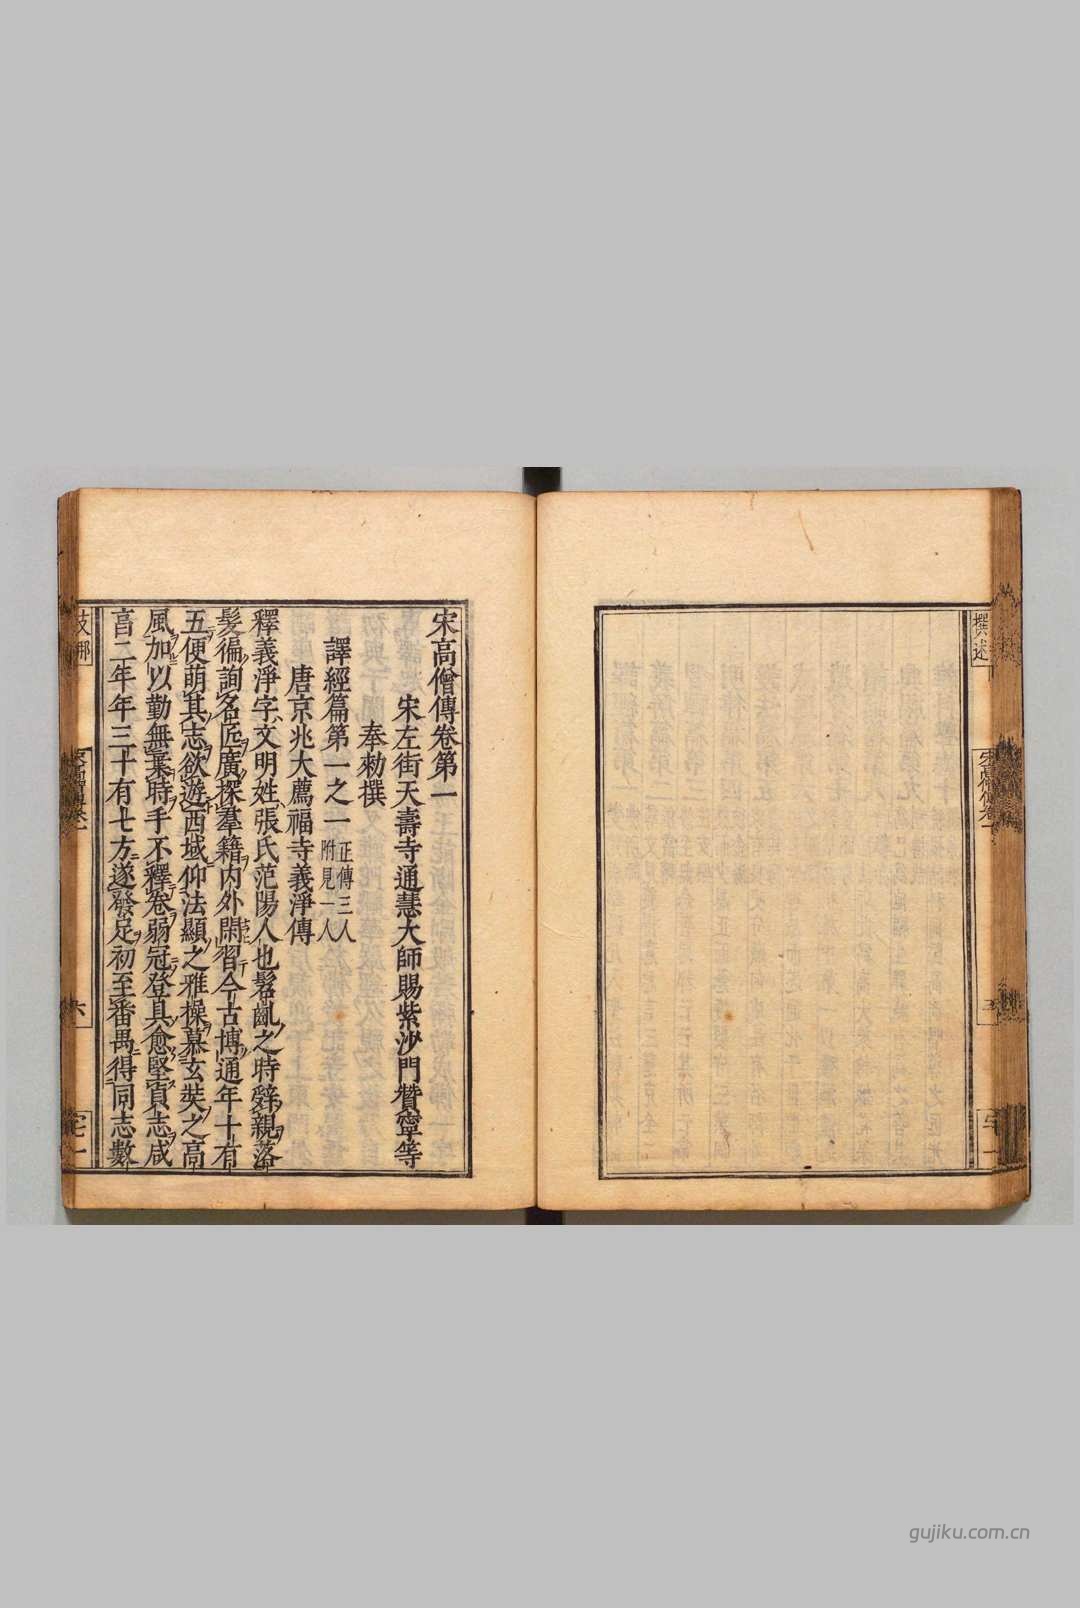 撰述
宋高僧傳卷一
宋高僧傳卷第一
宋左街天壽寺通慧大師賜紫沙門贊寧等
奉勅撰
譯經篇第一之一 正傳三人 附見一人
唐京兆大薦福寺義淨傳
釋義淨字文明姓張氏范陽人也髫齓之時辭親落
髮徧詢名匠廣探羣籍內外閑習今古博通年十有
五便萌其志欲遊西域仰法顯之雅操慕玄奘之高
風加以勤無棄時手不釋卷弱冠登具愈堅貞志咸
亯二年年三十有七方遂發足初至番禺得同志數
支那
六
gujiku.com.cn